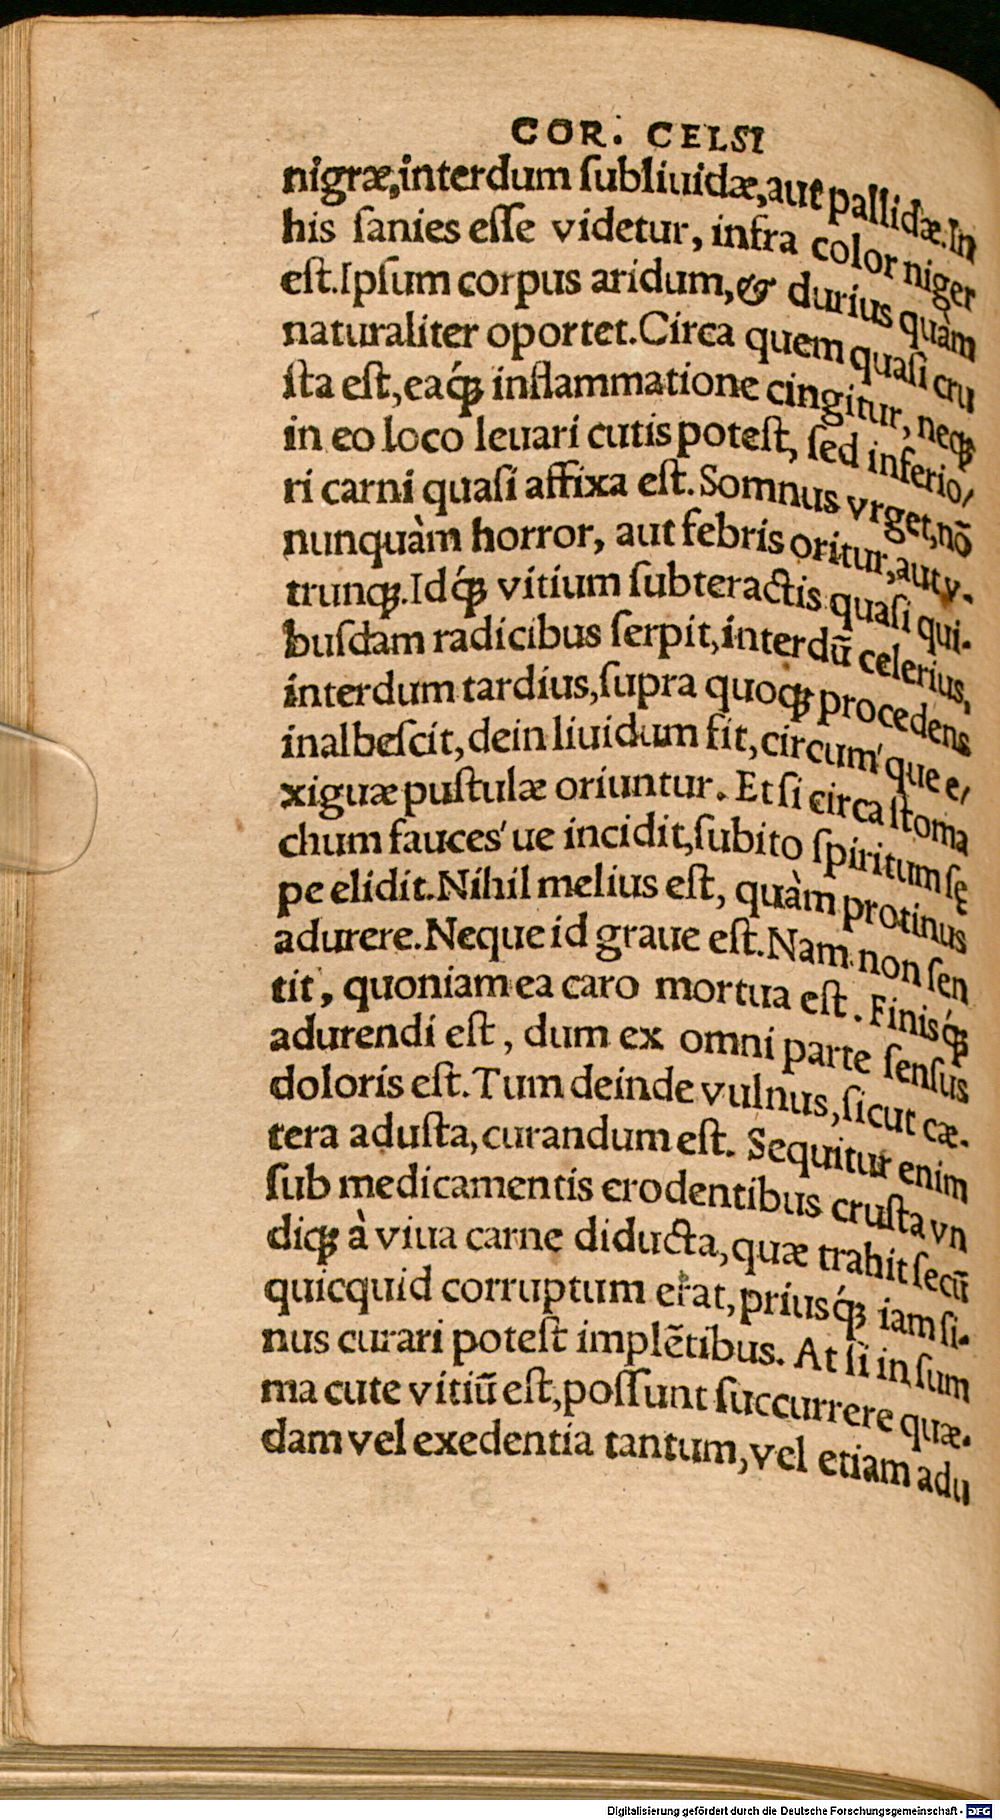 COR. CELSI
nigræ, interdum ſubliuidæ, aut pallidæ. In
his ſanies eſſe videtur, infra color niger
eſt. Ipſum corpus aridum, & durius quàm
naturaliter oportet. Circa quem quaſi cru
ſta eſt, eaq́ꝫ inflammatione cingitur, neqꝫ
in eo loco leuari cutis poteſt, ſed inferio/
ri carni quaſi affixa eſt. Somnus vrget, nõ
nunquàm horror, aut febris oritur, aut v-
trunqꝫ. Idq́ꝫ vitium ſubteractis quaſi qui-
buſdam radicibus ſerpit, interdũ celerius,
interdum tardius, ſupra quoqꝫ procedens
inalbeſcit, dein liuidum fit, circum'que e/
xiguæ puſtulæ oriuntur. Et ſi circa ſtoma
chum fauces'ue incidit, ſubito ſpiritum ſę
pe elidit. Nihil melius eſt, quàm protinus
adurere. Neque id graue eſt. Nam non ſen
tit, quoniam ea caro mortua eſt. Finisq́ꝫ
adurendi eſt, dum ex omni parte ſenſus
doloris eſt. Tum deinde vulnus, ſicut cæ-
tera aduſta, curandum eſt. Sequitur enim
ſub medicamentis erodentibus cruſta vn
diqꝫ à viua carne diducta, quæ trahit ſecũ
quicquid corruptum erat, priusq́ꝫ iam ſi-
nus curari poteſt implẽtibus. At ſi in ſum
ma cute vitiũ eſt, poſſunt ſuccurrere quæ-
dam vel exedentia tantum, vel etiam adu
Digitalisierung gefördert durch die Deutsche Forschungsgemeinschaft - DFG